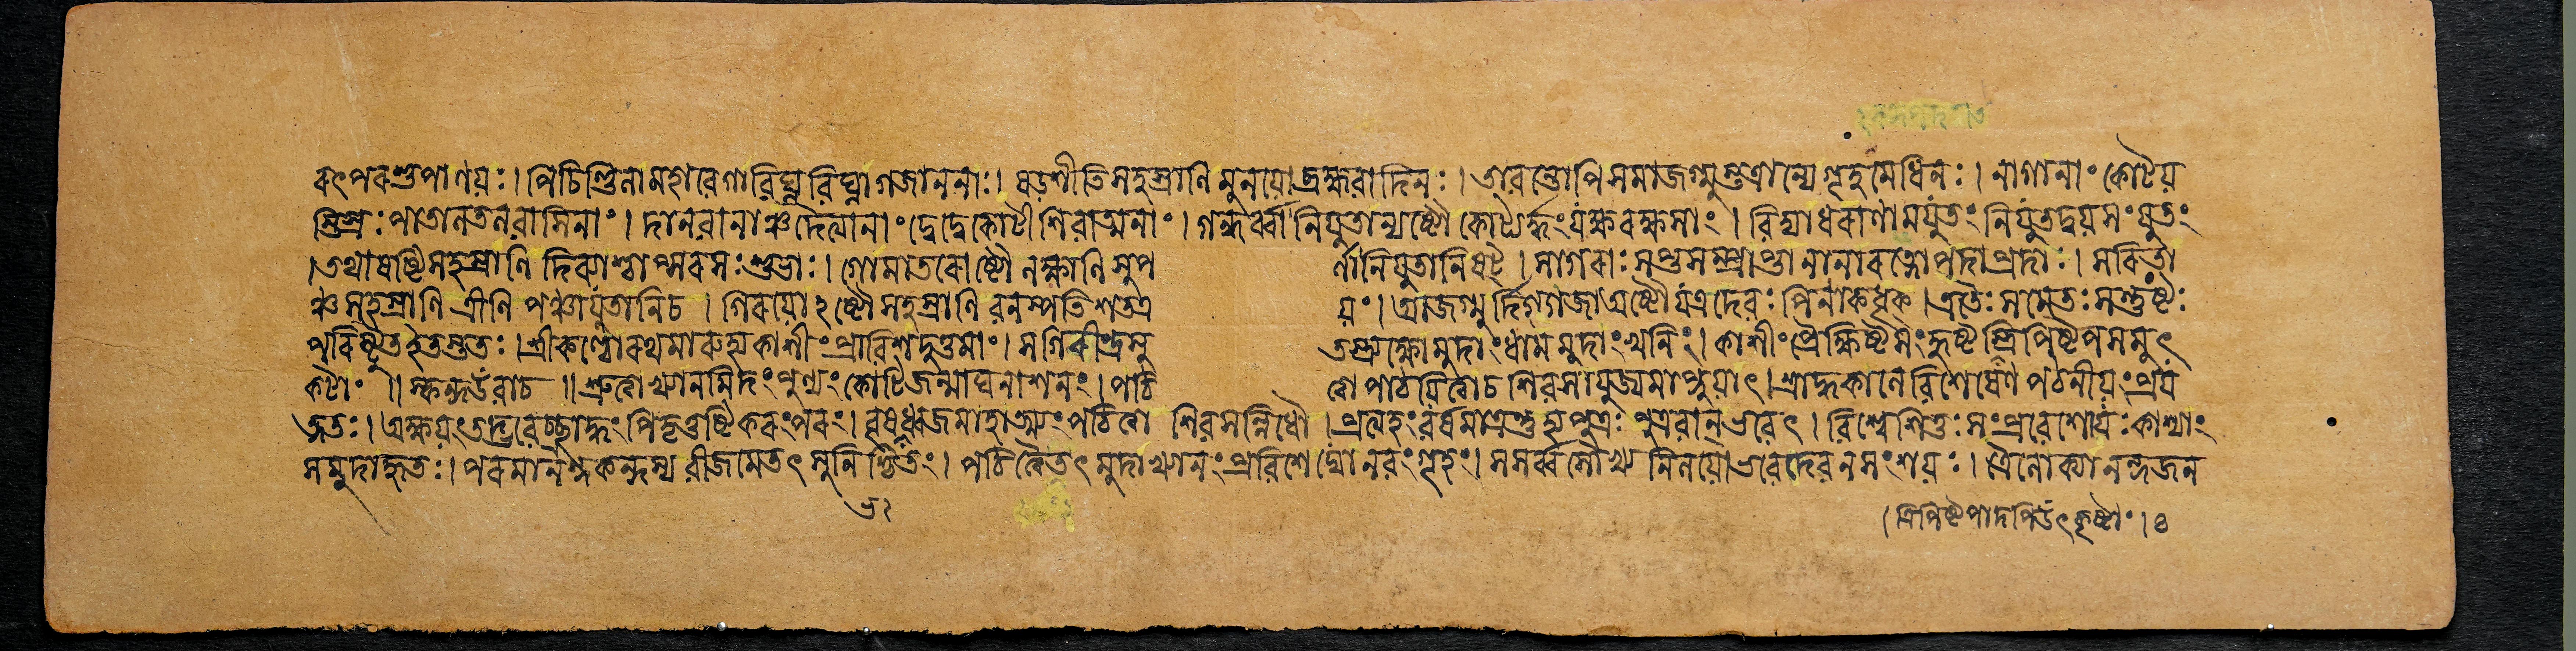 রৎপরশুপাণয়ঃ। পিচিণ্ডিনামহাবেগাবিঘ্নবিঘ্নাগজাননাঃ। ষড়শীতিসহস্রাণি মুনয়োব্রহ্মবাদিনঃ। তাবন্তোপিসমাজগ্মুস্তত্রান্যেগৃহমেধিনঃ। নাগানাং কোটয়
স্তিস্রঃ পাতালতলবাসিনাং। দানবানাঞ্চদৈত্যানাং দ্বেদ্বেকোটীশিবাত্মনাং। গন্ধর্ব্বানিযুতান্যষ্টৌ কোট্যর্দ্ধংযক্ষরক্ষসাং। বিদ্যাধরাণামযুতং নিযুতদ্বয়সংযুতং
। তথাষষ্টিসহস্রাণি দিব্যাশ্চাপ্সরসঃশুভাঃ। গোমাতরোষ্টৌলক্ষাণি সুপ র্ণানিযুতানিষট্। সাগরাঃ সপ্তসম্প্রাপ্তানানারত্নোপদাপ্রদাঃ। সরিতা
ঞ্চসহস্রাণি ত্রীণি পঞ্চাযুতানিচ। গিরয়োঽষ্টৌসহস্রাণি বনস্পতিশতত্র য়ং। আজগ্মুর্দিগ্গজাঅষ্টৌযত্রদেবঃ পিনাকধৃক। এতৈঃ সমেতঃসন্তুষ্টঃ
পরিষ্টুতইতস্ততঃ। শ্রীকণ্ঠোরথমারুহ্যকাশীং প্রাবিশদুত্তমাং। সগিরীন্দ্রসু তস্ত্র্যক্ষোমুদাংধামমুদাংখনিং। কাশীং প্রৈক্ষিষ্টসংহৃষ্টস্ত্রিপিষ্টপসমুৎ
কটাং ॥ স্কন্দউবাচ ॥ শ্রুত্বাখ্যানমিদংপুণ্যং কোটিজন্মাঘনাশনং। পঠি ত্বাপাঠয়িত্বাচ শিবসাযুজ্যমাপ্নুয়াৎ। শ্রাদ্ধকালেবিশেষেণ পঠনীয়ংপ্রয
ত্নতঃ। অক্ষয়ংতদ্ভবেচ্ছ্রাদ্ধং পিতৃতুষ্টিকরংপরং। বৃষধ্বজমাহাত্ম্যংপঠিত্বা শিবসন্নিধৌ। প্রত্যহংবর্ষমাত্রন্তুহ্যপুত্রঃ পুত্রবান্ভবেৎ। বিশ্বেশিতুঃসংপ্রবেশোয়ং কাশ্যাং
সমুদাহৃতঃ। পরমানন্দকন্দস্য বীজমেতৎ সুনিশ্চিতং। পঠিত্বৈতৎ মুদাখ্যানং প্রবিশেদ্যোনবংগৃহং। সসর্ব্বসৌখ্য নিলয়োভবেদেবনসংশয়ঃ। ত্রৈলোক্যানন্দজন
। ত্রিপিষ্টপাদপিউৎকৃষ্টাং। ৪